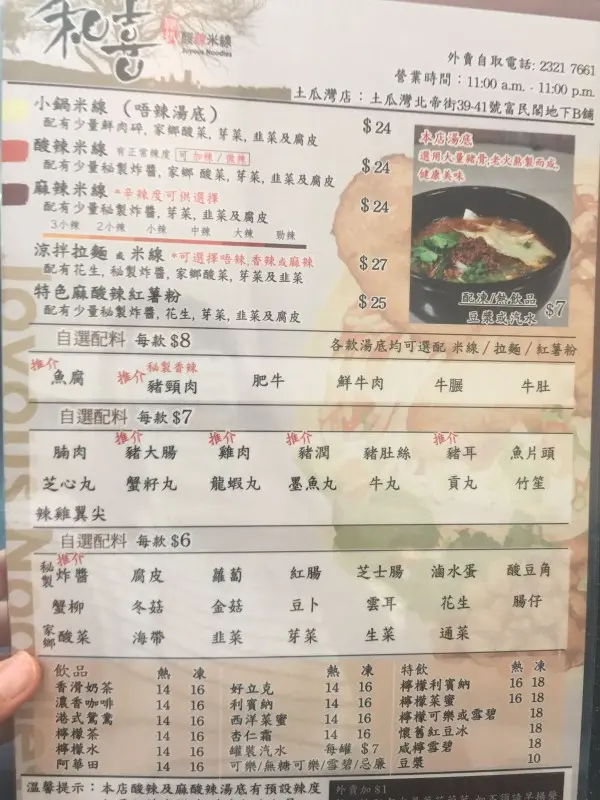 和喜
酸辣米線
Joyous Noodles
外賣自取電話: 2321 7661
營業時間：11:00 a.m. - 11:00 p.m.
土瓜灣店：土瓜灣北帝街39-41號富民閣地下B舖
小鍋米線（唔辣湯底） $24
配有少量鮮肉碎, 家鄉酸菜, 芽菜, 韭菜及腐皮
酸辣米線 有正常辣度 可加辣/微辣 $24
配有少量秘製炸醬, 家鄉酸菜, 芽菜, 韭菜及腐皮
麻辣米線 *辛辣度可供選擇 $24
配有少量秘製炸醬, 芽菜, 韭菜及腐皮
3小辣 2小辣 小辣 中辣 大辣 勁辣
涼拌拉麵 或 米線 *可選擇唔辣,香辣或麻辣 $27
配有花生, 秘製炸醬, 家鄉酸菜, 芽菜及韭菜
特色麻酸辣紅薯粉 $25
配有少量秘製炸醬, 花生, 芽菜, 韭菜及腐皮
本店湯底
選用大量豬骨,老火熬製而成,
健康美味
配凍/熱飲品
豆漿或汽水 $7
自選配料 每款 $8
各款湯底均可選配 米線 / 拉麵 / 紅薯粉
推介 魚腐 推介 秘製香辣 豬頸肉 肥牛 鮮牛肉 牛腒 牛肚
自選配料 每款 $7
推介 推介 推介 推介
腩肉 豬大腸 雞肉 豬潤 豬肚絲 豬耳 魚片頭
芝心丸 蟹籽丸 龍蝦丸 墨魚丸 牛丸 貢丸 竹笙
辣雞翼尖
自選配料 每款 $6
推介
秘製 炸醬 腐皮 蘿蔔 紅腸 芝士腸 滷水蛋 酸豆角
蟹柳 冬菇 金菇 豆卜 雲耳 花生 腸仔
家鄉 酸菜 海帶 韭菜 芽菜 生菜 通菜
飲品 熱 凍
香滑奶茶 14 16
濃香咖啡 14 16
港式鴛鴦 14 16
檸檬茶 14 16
檸檬水 14 16
阿華田 14 16
熱 凍
好立克 14 16
利賓納 14 16
西洋菜蜜 14 16
杏仁霜 14 16
罐裝汽水 每罐 $7
可樂/無糖可樂/雪碧/忌廉
特飲 熱 凍
檸檬利賓納 16 18
檸檬菜蜜 16 18
檸檬可樂或雪碧 18
懷舊紅豆冰 18
咸檸雪碧 18
豆漿 10
溫馨提示：本店酸辣及麻酸辣湯底有預設辣度
外賣加 $1